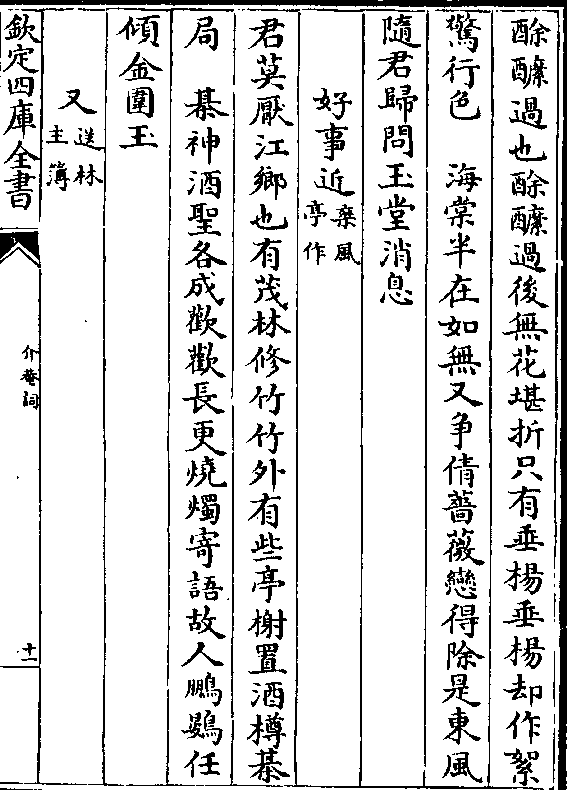 酴醾過也酴醾過後無花堪折只有垂楊垂楊却作絮
驚行色　海棠半在如無又争倩薔薇戀得除是東風
隨君歸問玉堂消息
好事近棄風亭作
君莫厭江鄉也有茂林修竹竹外有些亭榭置酒樽棊
局　棊神酒聖各成歡歡長更燒燭寄語故人鵬鷃任
傾金圍玉
又送林主簿
欽定四庫全書
介菴詞
十一